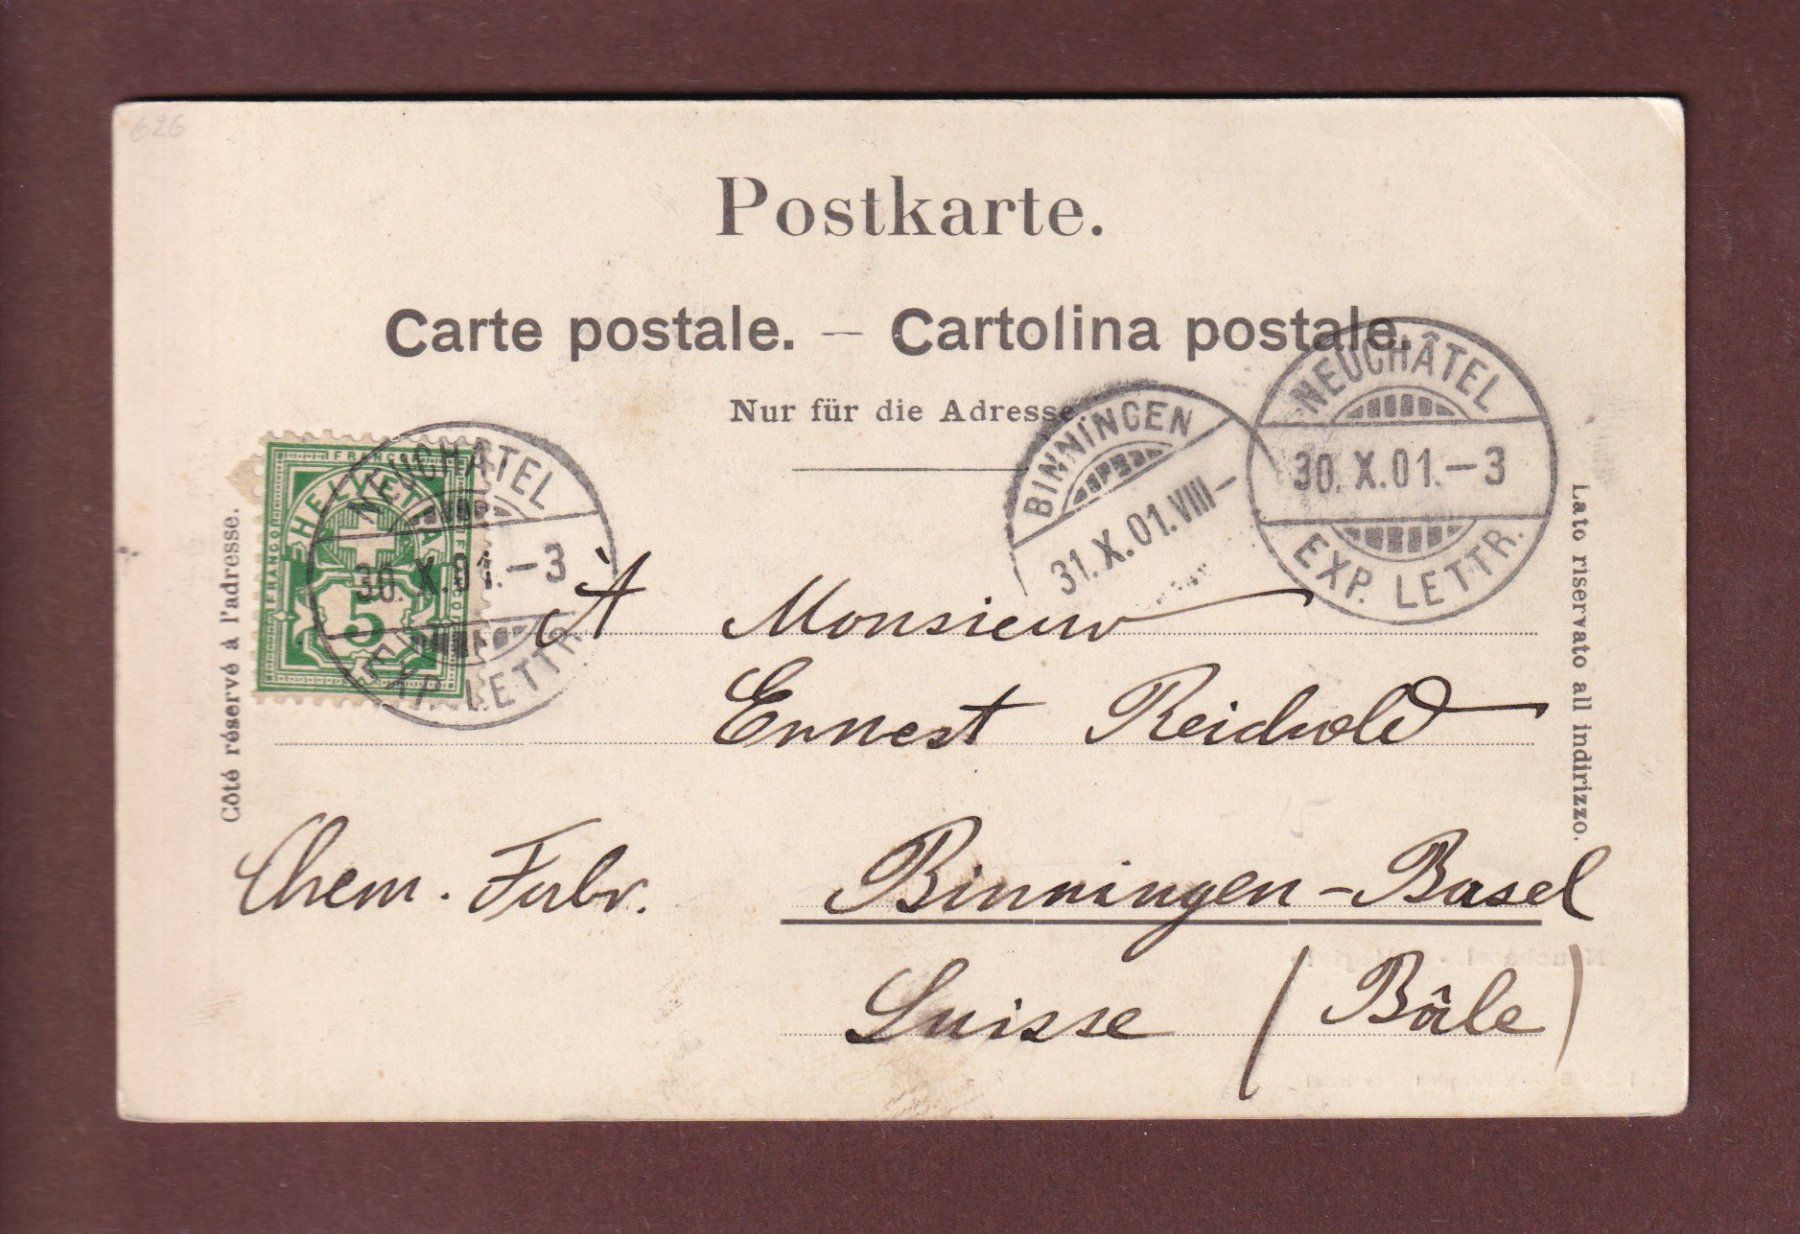 626
Postkarte.
Carte postale. — Cartolina postale.
Nur für die Adresse.
NEUCHÂTEL
30.X.01.—3
EXP. LETTR.
BINNINGEN
31.X.01.VIII—
FRANCO
HELVETIA
FRANCO
FRANCO
5
NEUCHÂTEL
30.X.01.—3
EXP. LETTR.
Côté réservé à l'adresse.
Lato riservato all indirizzo.
À Monsieur
Ernest Reichold
Chem. Fabr. Binningen-Basel
Suisse (Bâle)